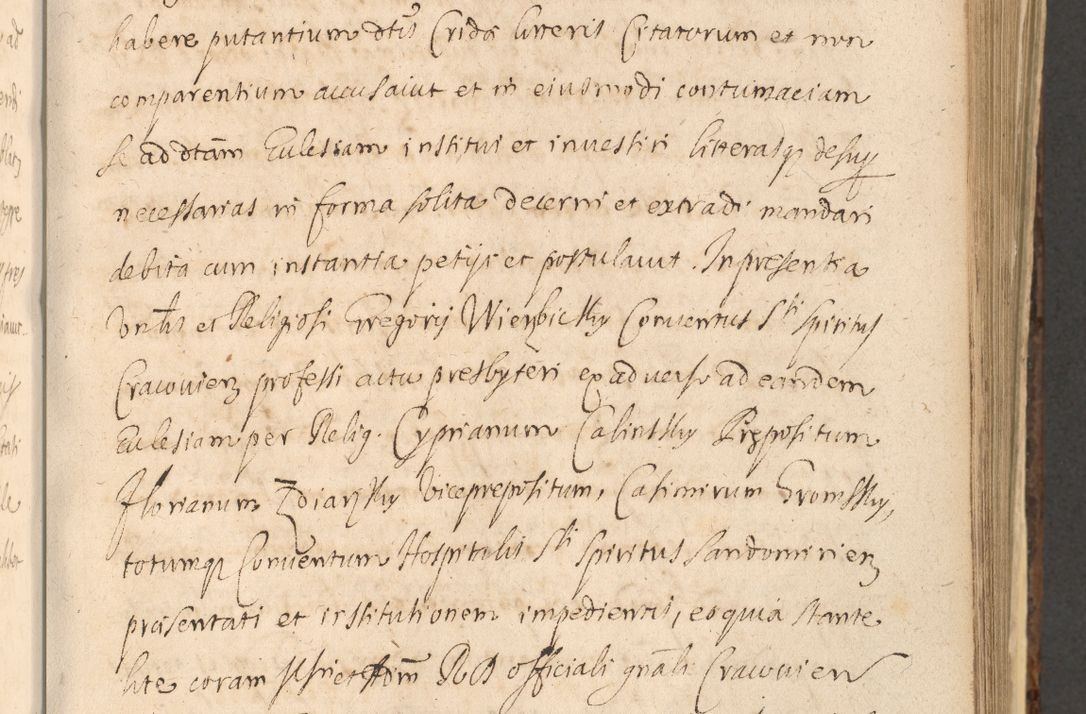 habere putantium dtis Cridæ litteris Citatorum et non
comparentium accusavit et in eiusmodi contumaciam
se ad dtam Ecclesiam institui et investiri litterasq desup
necessarias in forma solita decerni et extradi mandari
debita cum instantia petijt et postulavit. In presentia
et Religiosi Gregorij Wierzbicky Conventus Sti spiritus
Cracovien professi actu presbyteri ex adverso ad eandem
Ecclesiam per Relig. Cyprianum Calinsky Præpositum
Florianum Zdiarsky vicepræpositum, Casimirum Gromsky,
totumq Conventum Hospitalis Sti spiritus Sandomirien
præsentati et institutionem impedientis, eo quia stante
lite coram officiali gnali Cracovien